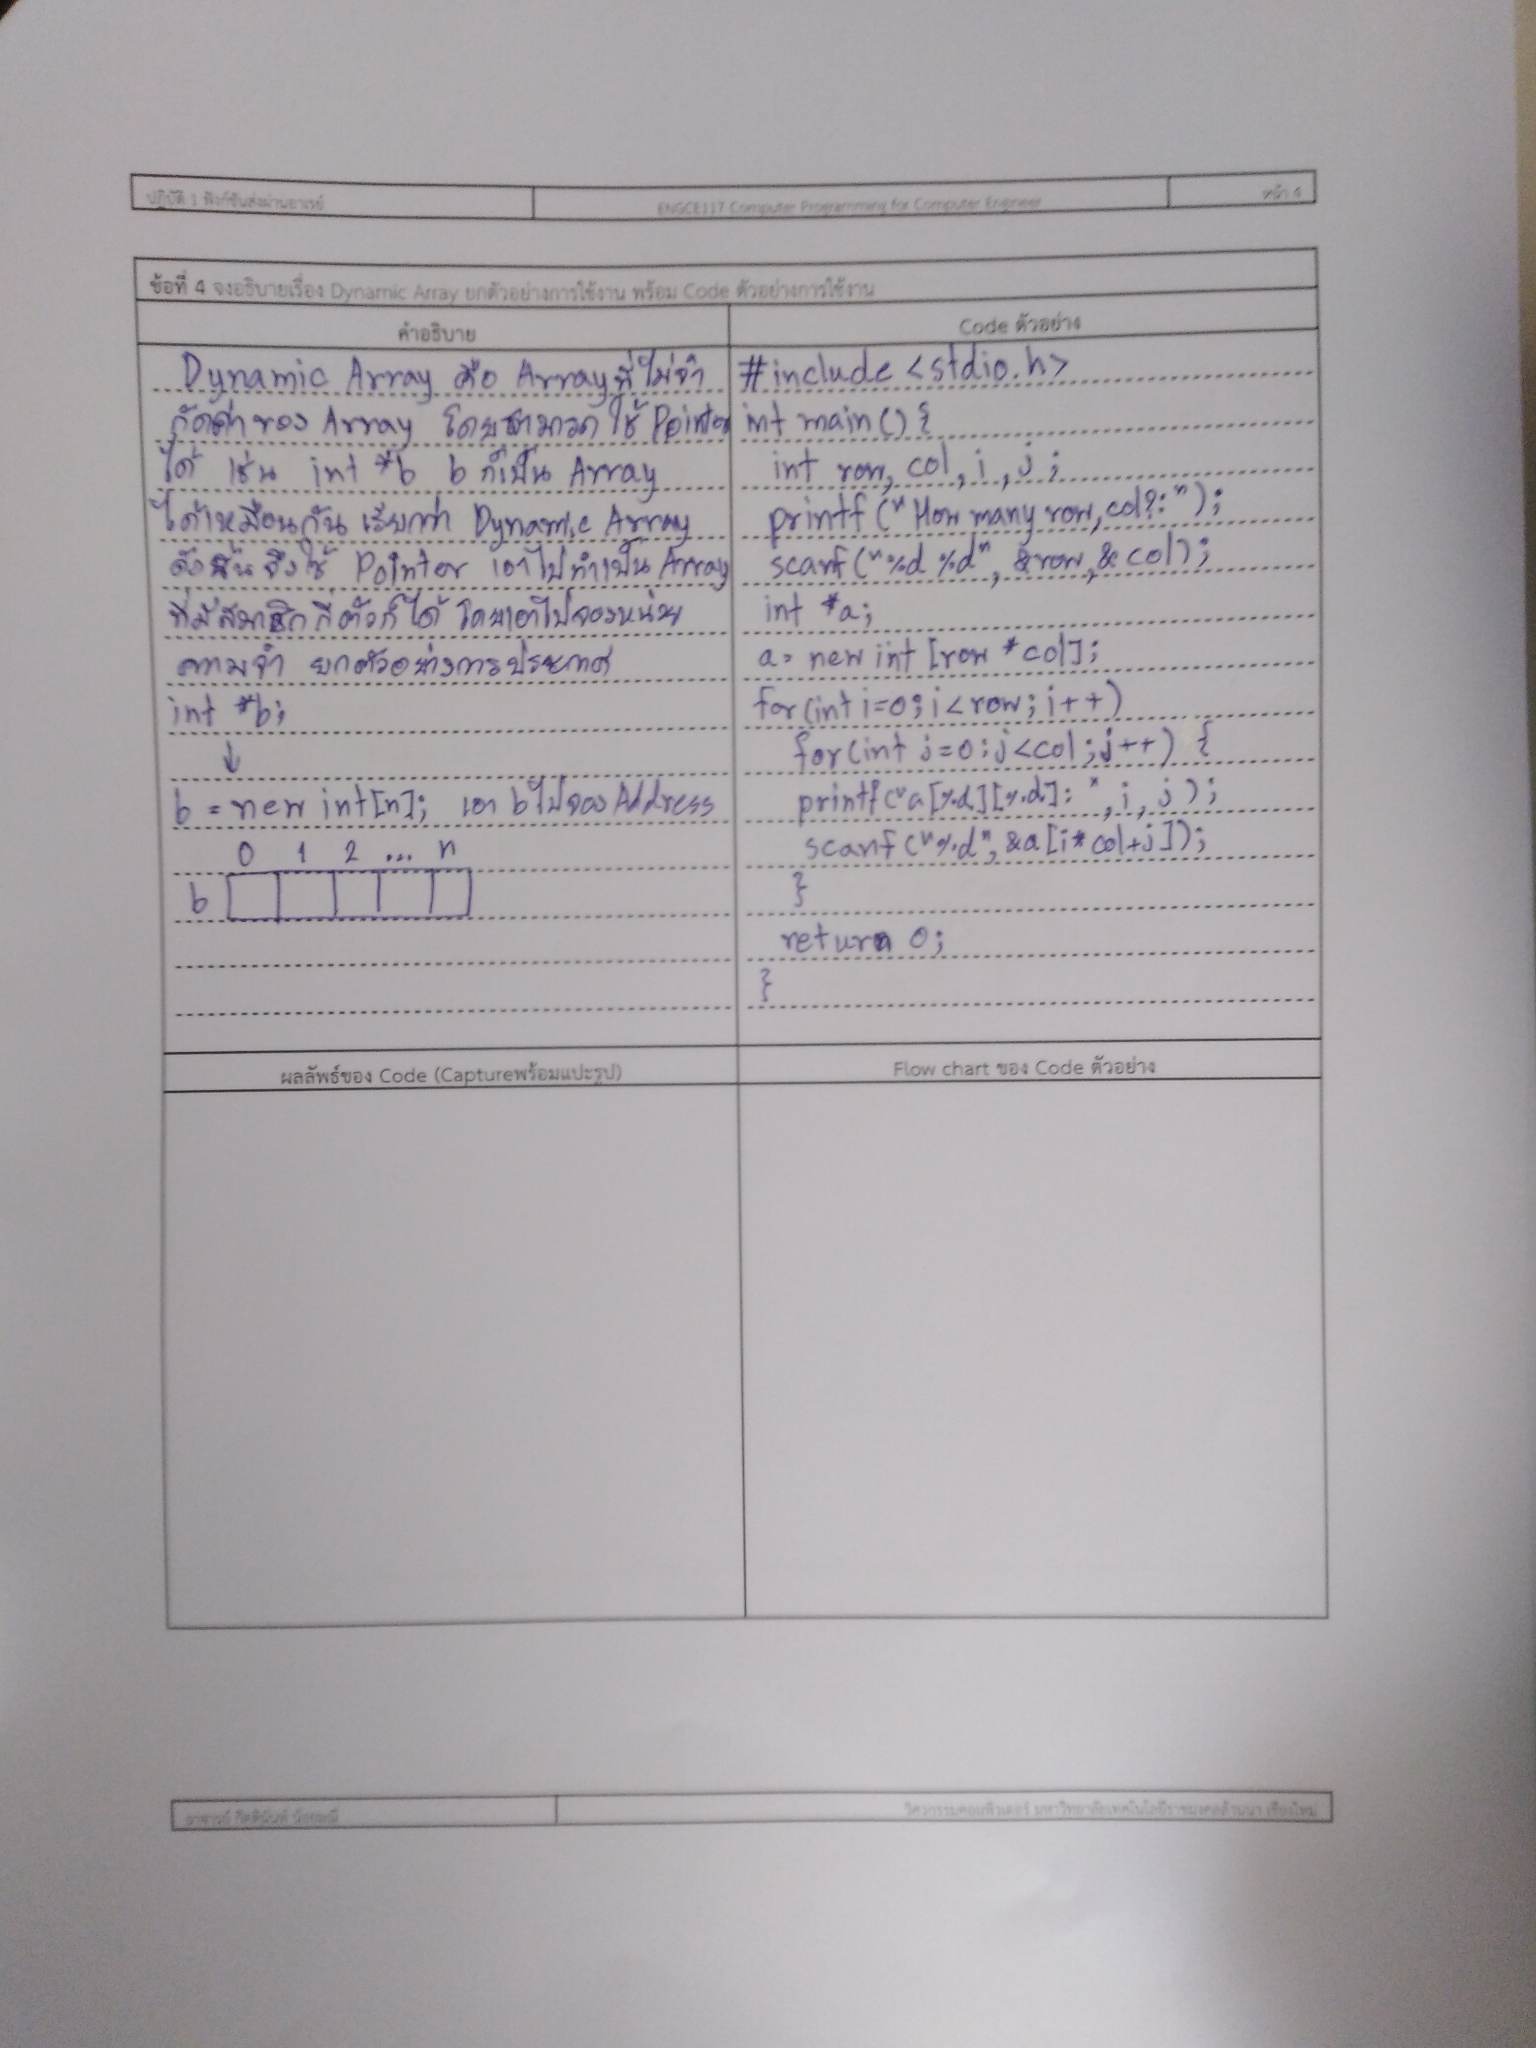 ปฏิบัติ 1 ฟังก์ชันส่งผ่านอาเรย์
ENGCE117 Computer Programming for Computer Engineer
หน้า 4
ข้อที่ 4 จงอธิบายเรื่อง Dynamic Array ยกตัวอย่างการใช้งาน พร้อม Code ตัวอย่างการใช้งาน
คำอธิบาย
Dynamic Array คือ Array ที่ไม่จำ
กัดค่าของ Array โดยสามารถ ใช้ Pointer
ได้ เช่น int *b b ก็เป็น Array
ได้เหมือนกัน เรียกว่า Dynamic Array
ดังนั้นจึงใช้ Pointer เอาไปทำเป็น Array
ที่มีสมาชิกกี่ตัวก็ได้ โดยเอาไปจองหน่วย
ความจำ ยกตัวอย่างการประกาศ
int *b;
↓
b = new int[n]; เอา b ไปจอง Address
0 1 2 ... n
b
Code ตัวอย่าง
#include <stdio.h>
int main() {
int row, col, i, j;
printf("How many row,col?:");
scanf("%d %d", &row, &col);
int *a;
a = new int [row * col];
for(int i=0; i<row; i++)
for(int j=0; j<col; j++) {
printf("a[%d][%d]: ", i, j);
scanf("%d", &a[i*col+j]);
}
return 0;
}
ผลลัพธ์ของ Code (Captureพร้อมแปะรูป)
Flow chart ของ Code ตัวอย่าง
อาจารย์ กิตตินันท์ น้อยมณี
วิศวกรรมคอมพิวเตอร์ มหาวิทยาลัยเทคโนโลยีราชมงคลล้านนา เชียงใหม่